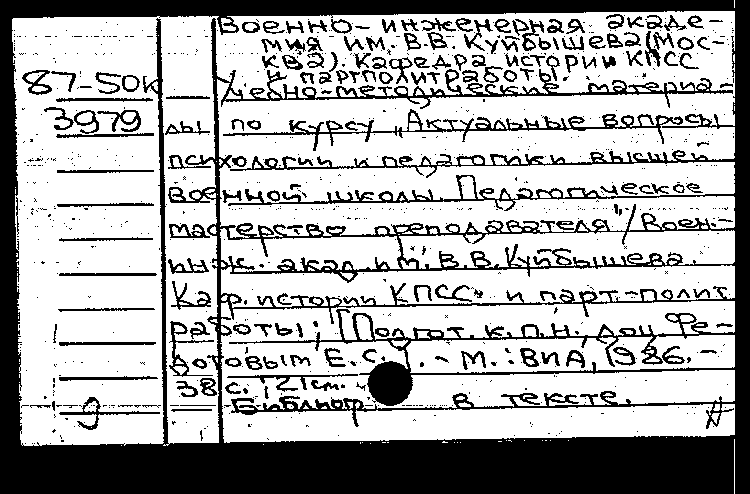 Военно-инженерная акаде-
мия им. В.В. Куйбышева (Мос-
ква). Кафедра истории КПСС
и партполитработы.
87-50к Учебно-методические материа-
3979 лы по курсу „Актуальные вопросы
психологии и педагогики высшей
военной школы. Педагогическое
мастерство преподавателя"/Воен.-
инж. акад. им. В.В. Куйбышева.
Каф. истории КПСС и парт.-полит.
работы; [Подгот. к.п.н., доц. Фе-
дотовым Е.С.]. - М. : ВИА, 1986. -
38 с. ; 21 см.
9 Библиогр в тексте.